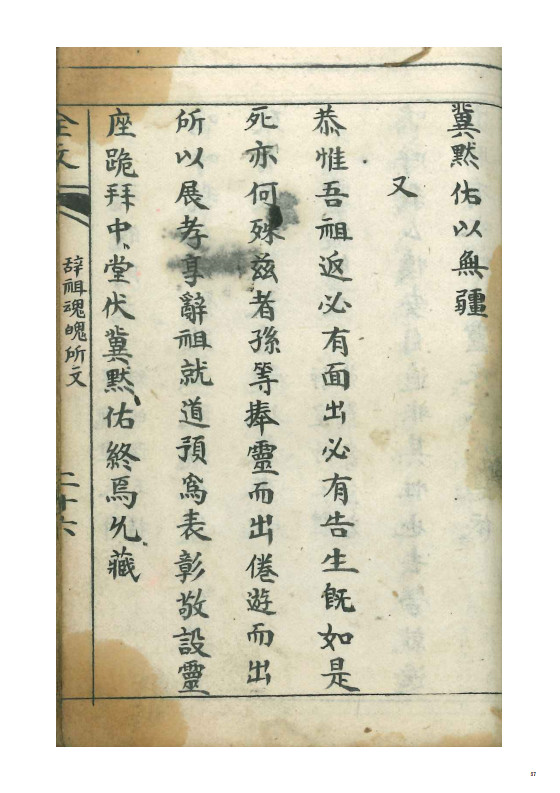 冀默佑以無疆
又
恭惟吾祖返必有面出必有告生旣如是
死亦何殊茲者孫等捧靈而出倦遊而出
所以展孝享辭祖就道預爲表彰敬設靈
座跪拜中堂伏冀默佑終焉允藏
全文
辞祖魂魄所文
二十六
87